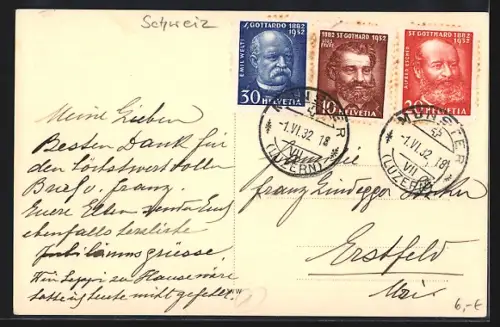 Schweiz
1882 ST. GOTTARDO 1932
EMIL WELTI
30 HELVETIA
1882 ST GOTTHARD 1932
LOUIS FAVRE
10 HELVETIA
ST GOTTHARD 1882 1932
ALFRED ESCHER
HELVETIA
MÜNSTER
-1.VI.32.18
VII
(LUZERN)
MÜNSTER
-1.VI.32.18
VII
(LUZERN)
Meine Lieben
Besten Dank für
den höchstwertvollen
Brief v. Franz.
Eure Eltern senden Euch
ebenfalls herzliche
Jubiläumsgrüsse.
Wär Seppi zu Hause wäre
hätte es heute nicht gefehlt.
Familie
Franz Lindegger
Erstfeld
Uri
6,-€